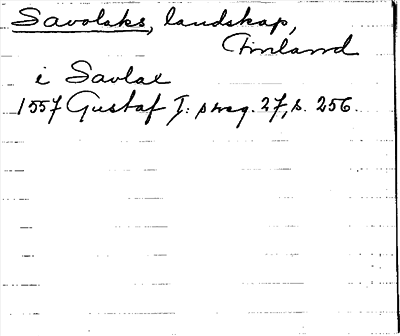 Savolaks, landskap,
Finland
i Savlax
1557 Gustaf I: s reg. 27, s. 256.